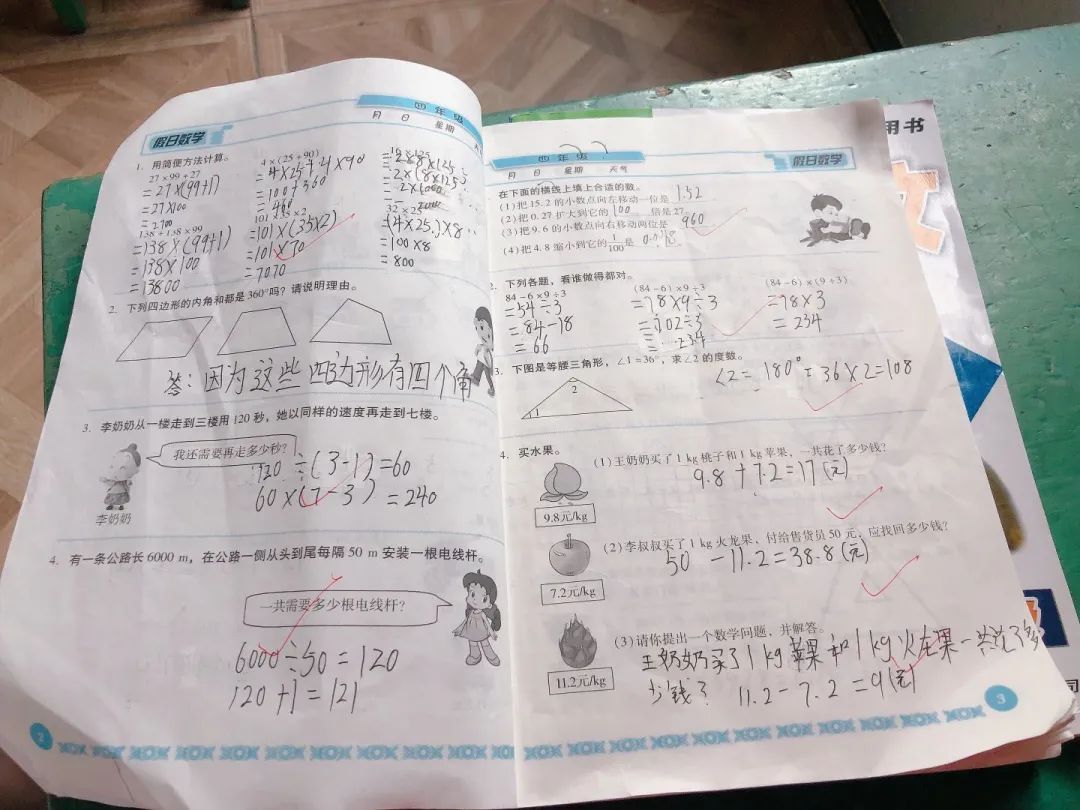 四年级
月 日 星期
假日数学
1. 用简便方法计算。
27×99+27
=27×(99+1)
=27×100
=2700
138+138×99
=138×(99+1)
=138×100
=13800
4×(25+90)
=4×25+4×90
=100+360
=460
101×35×2
=101×(35×2)
=101×70
=7070
16×125
=2×8×125
=2×(8×125)
=2×1000
32×25
=(4×25)×8
=100×8
=800
2. 下列四边形的内角和都是360°吗?请说明理由。
答:因为这些四边形有四个角
3. 李奶奶从一楼走到三楼用120秒,她以同样的速度再走到七楼。
我还需要再走多少秒?
120÷(3-1)=60
60×(7-3)=240
李奶奶
4. 有一条公路长6000 m,在公路一侧从头到尾每隔50 m安装一根电线杆。
一共需要多少根电线杆?
6000÷50=120
120+1=121
2
四年级
月 日 星期 天气
假日数学
在下面的横线上填上合适的数。
(1)把15.2的小数点向左移动一位是 1.52
(2)把0.27扩大到它的 100 倍是27
(3)把9.6的小数点向右移动两位是 960
(4)把4.8缩小到它的1/100是
2. 下列各题,看谁做得都对。
84-6×9÷3
=54÷3
=84-18
=66
(84-6)×9÷3
=78×9÷3
=702÷3
=234
(84-6)×(9÷3)
=78×3
=234
3. 下图是等腰三角形,∠1=36°,求∠2的度数。
1
2
∠2=180°-36×2=108
4. 买水果。
(1)王奶奶买了1 kg桃子和1 kg苹果,一共花了多少钱?
9.8+7.2=17(元)
9.8元/kg
(2)李叔叔买了1 kg火龙果,付给售货员50元,应找回多少钱?
50-11.2=38.8(元)
7.2元/kg
(3)请你提出一个数学问题,并解答。
王奶奶买了1kg苹果和1kg火龙果一共花了多
少钱? 11.2-7.2=9(元)
11.2元/kg
3
用书
司